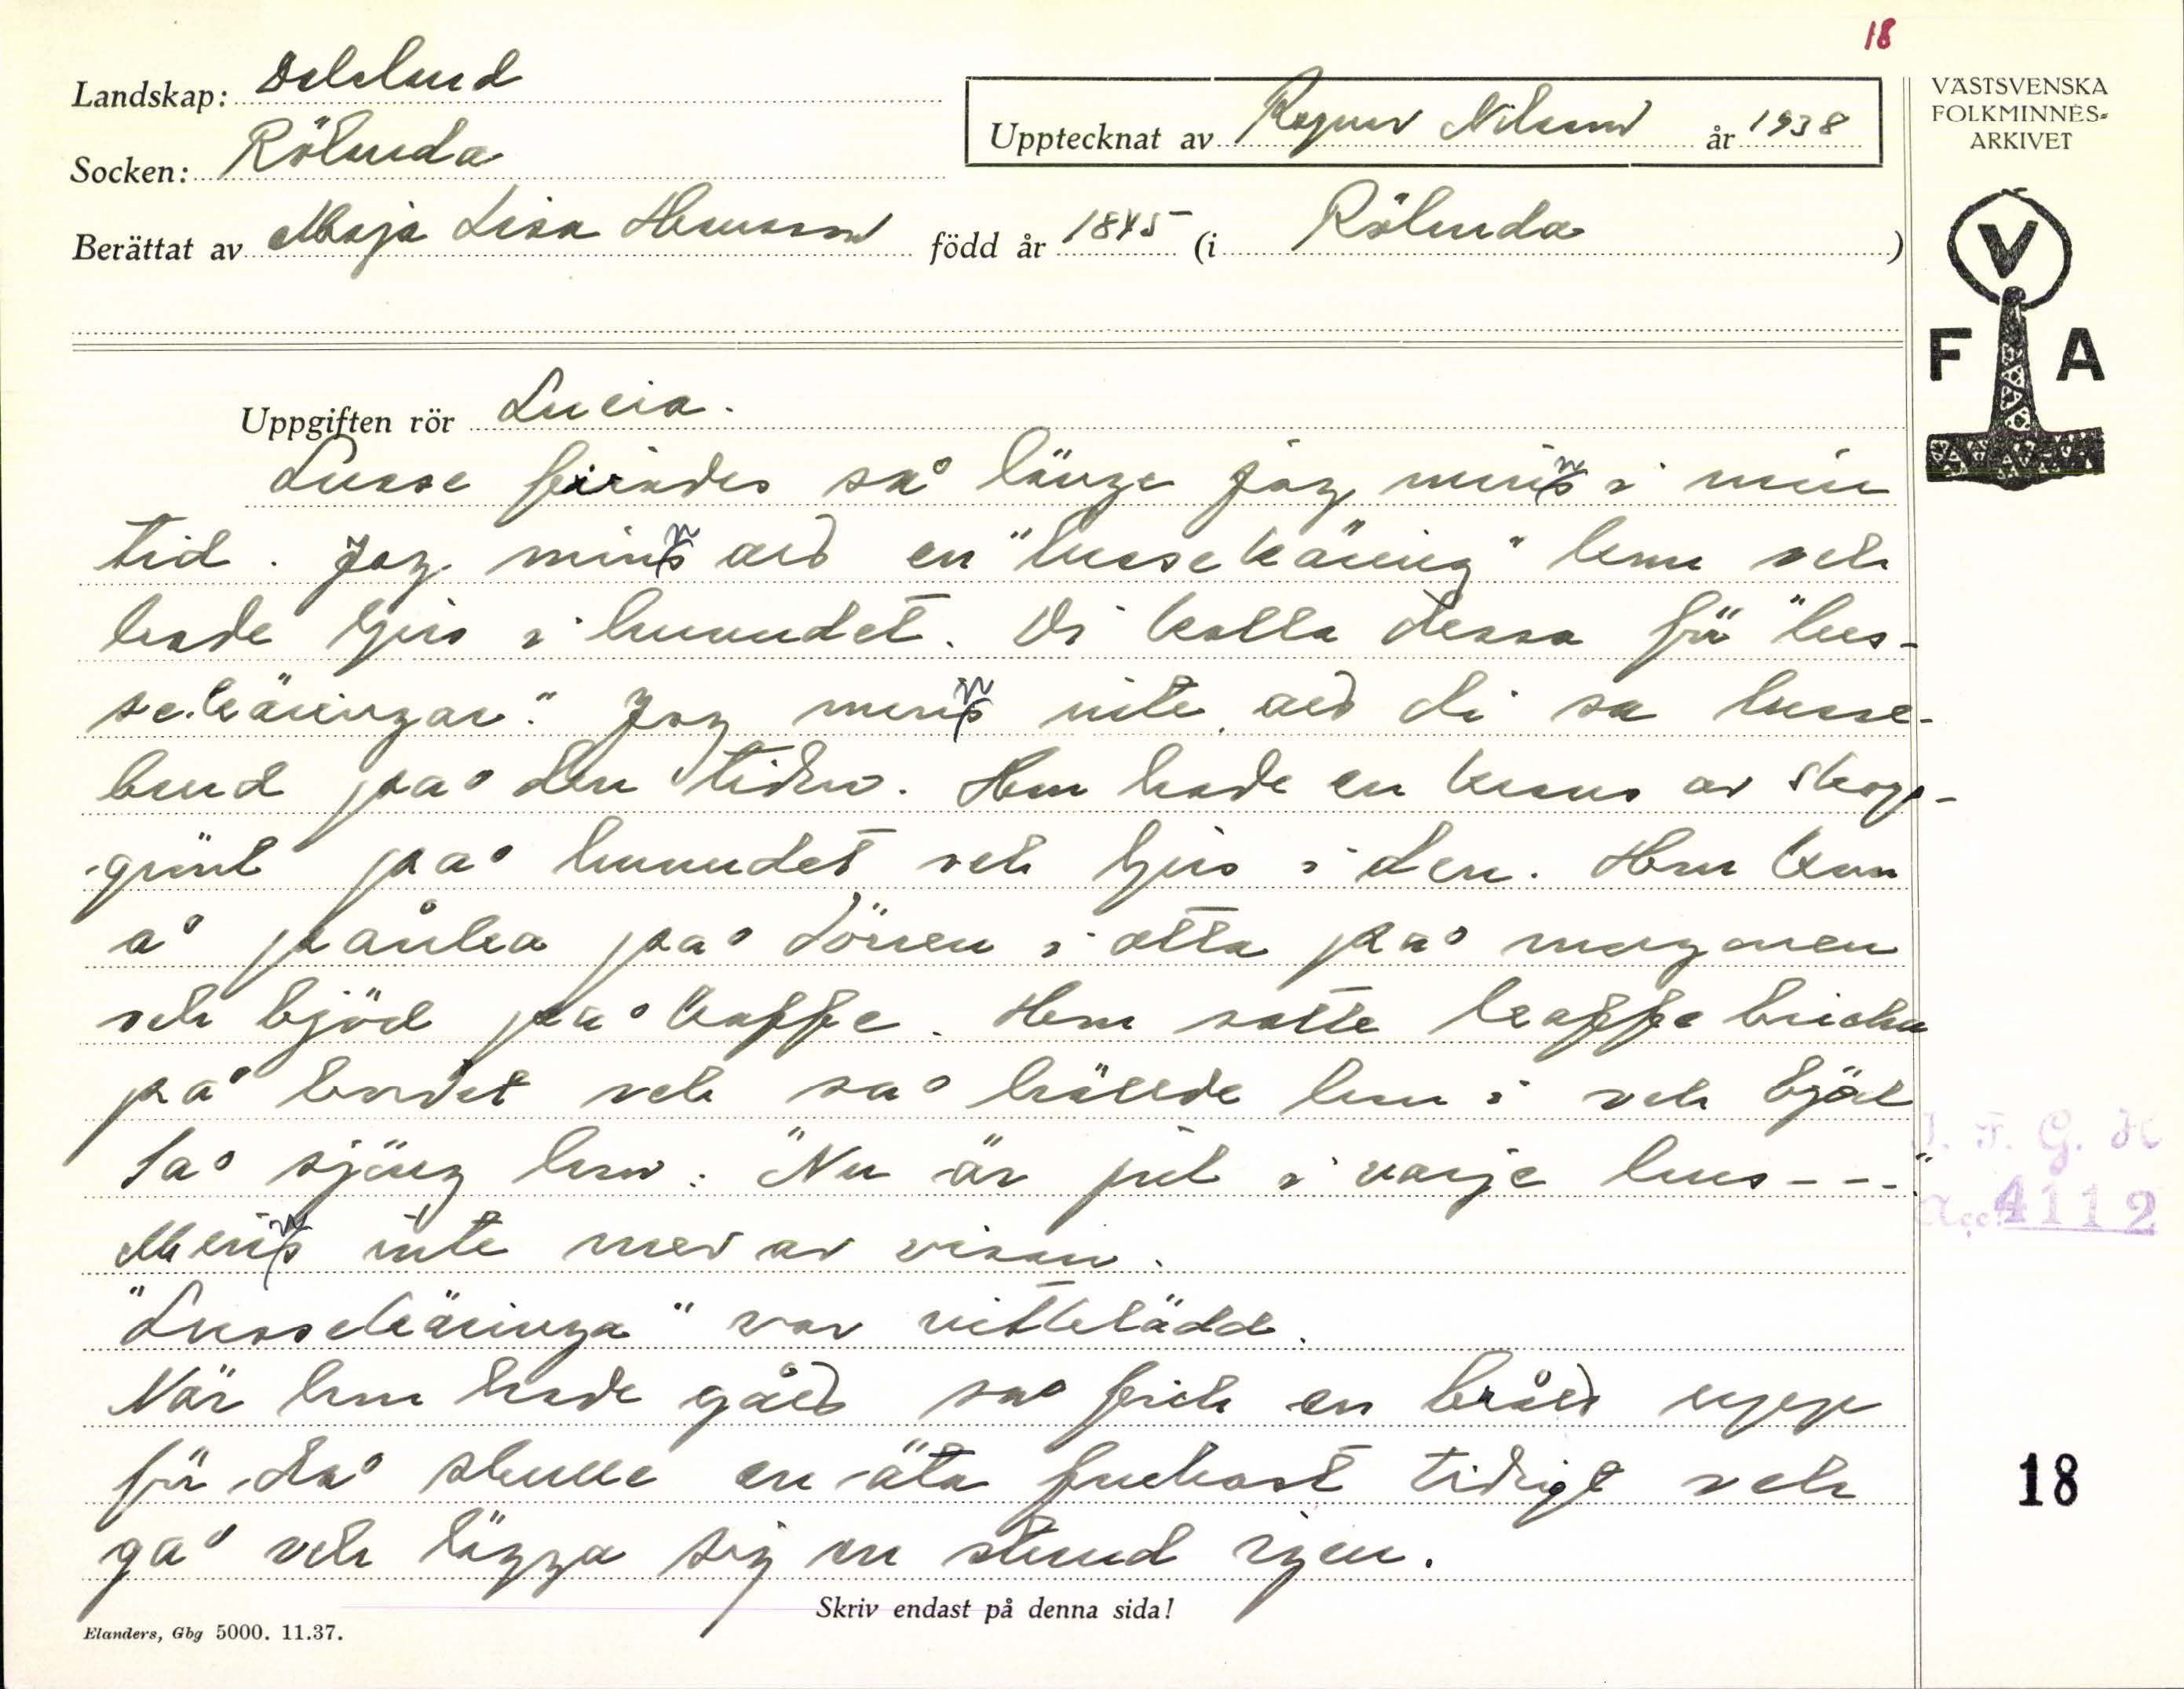 18
Landskap: Dalsland
Socken: Rölanda
Upptecknat av Ragnar Nilsson år 1938
Berättat av Maja Lisa Hansson född år 1845 (i Rölanda)
VÄSTSVENSKA
FOLKMINNES-
ARKIVET
V
F A
Uppgiften rör Lucia.
Lusse firades så länge jag minns i min
tid. Jag minns att en "lussekäring" kom och
hade ljus i huvudet. Di kalla dessa för "lus-
sekäringar." Jag minns inte att di sa lusse-
brud på den tiden. Hon hade en krans av skogs-
grönt på huvudet och ljus i den. Hon kom
å pånka på dörren i otta på morgonen
och bjöd på kaffe. Hon satte kaffebricka
på bordet och så hällde hon i och bjöd
Så sjöng hon: "Nu är jul i varje hus---"
Minns inte mer av visan.
"Lussekäringa" var vitklädd.
När hon hade gått så fick en brått upp
för då skulle en äta frukost tidigt och
gå och lägga sig en stund igen.
I. F. G. H
Acc. 4112
18
Skriv endast på denna sida!
Elanders, Gbg 5000. 11.37.